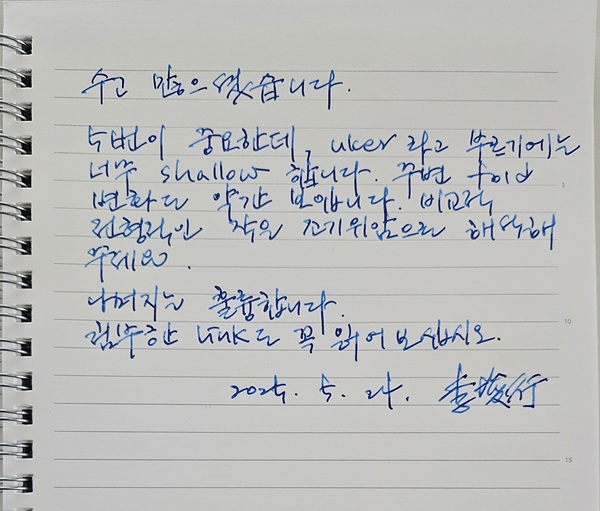 수고 많으셨습니다.
5번이 중요한데, ulcer 라고 부르기에는
너무 shallow 합니다. 주변 fold
변화도 약간 보입니다. 비교적
전형적인 작은 조기위암으로 해석해
주세요.
나머지는 훌륭합니다.
첨부한 link도 꼭 읽어 보십시오.
2025. 5. 24. 李
5
10
15